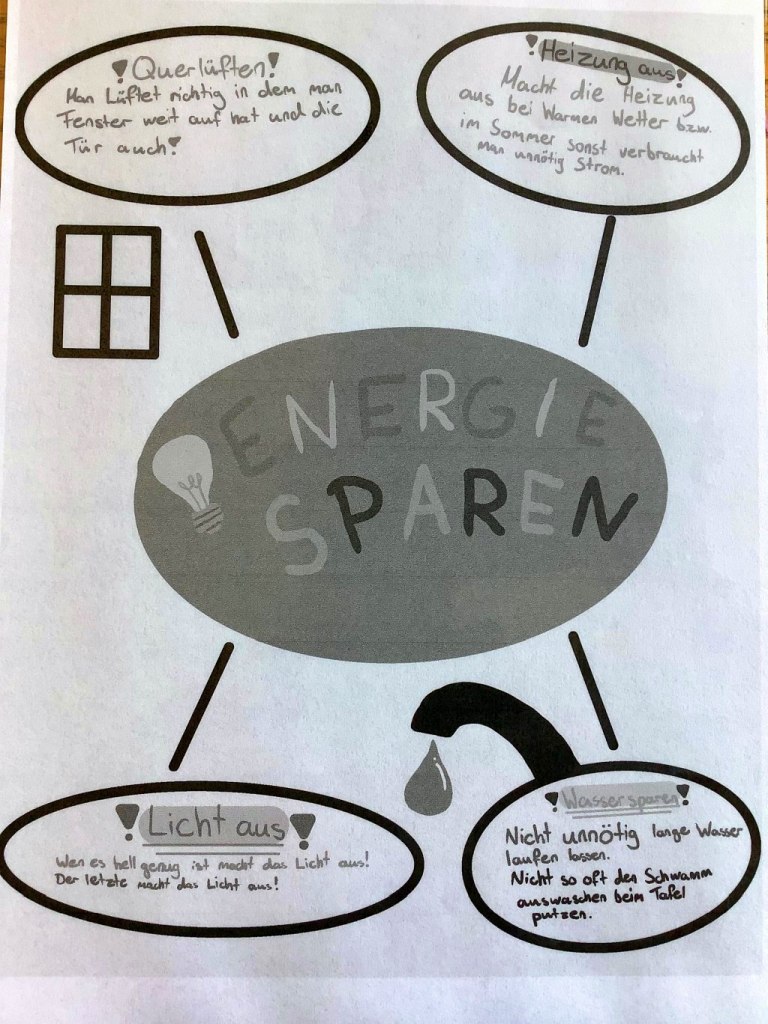 !Querlüften!
Man Lüftet richtig in dem man
Fenster weit auf hat und die
Tür auch!
!Heizung aus!
Macht die Heizung
aus bei Warmen Wetter bzw.
im Sommer sonst verbraucht
man unnötig Strom.
ENERGIE
SPAREN
!Licht aus!
Wen es hell genug ist macht das Licht aus!
Der letzte macht das Licht aus!
!Wassersparen!
Nicht unnötig lange Wasser
laufen lassen.
Nicht so oft den Schwamm
auswaschen beim Tafel
putzen.